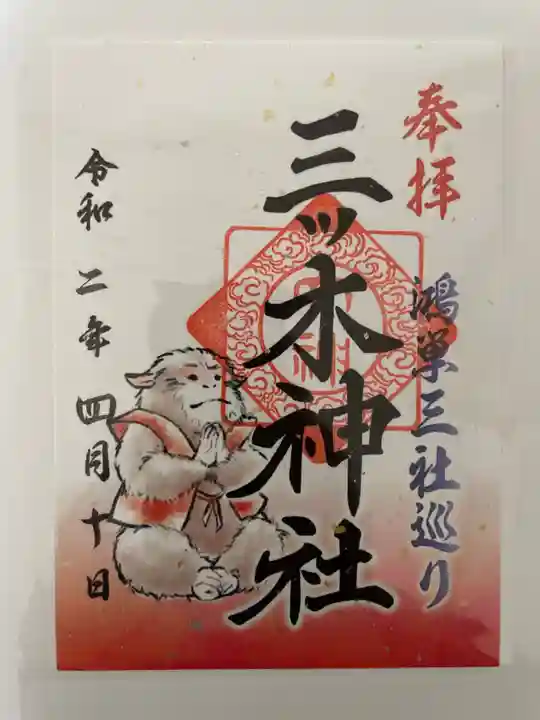 奉拝
鴻巣三社巡り
三ッ木神社
令和二年四月十日